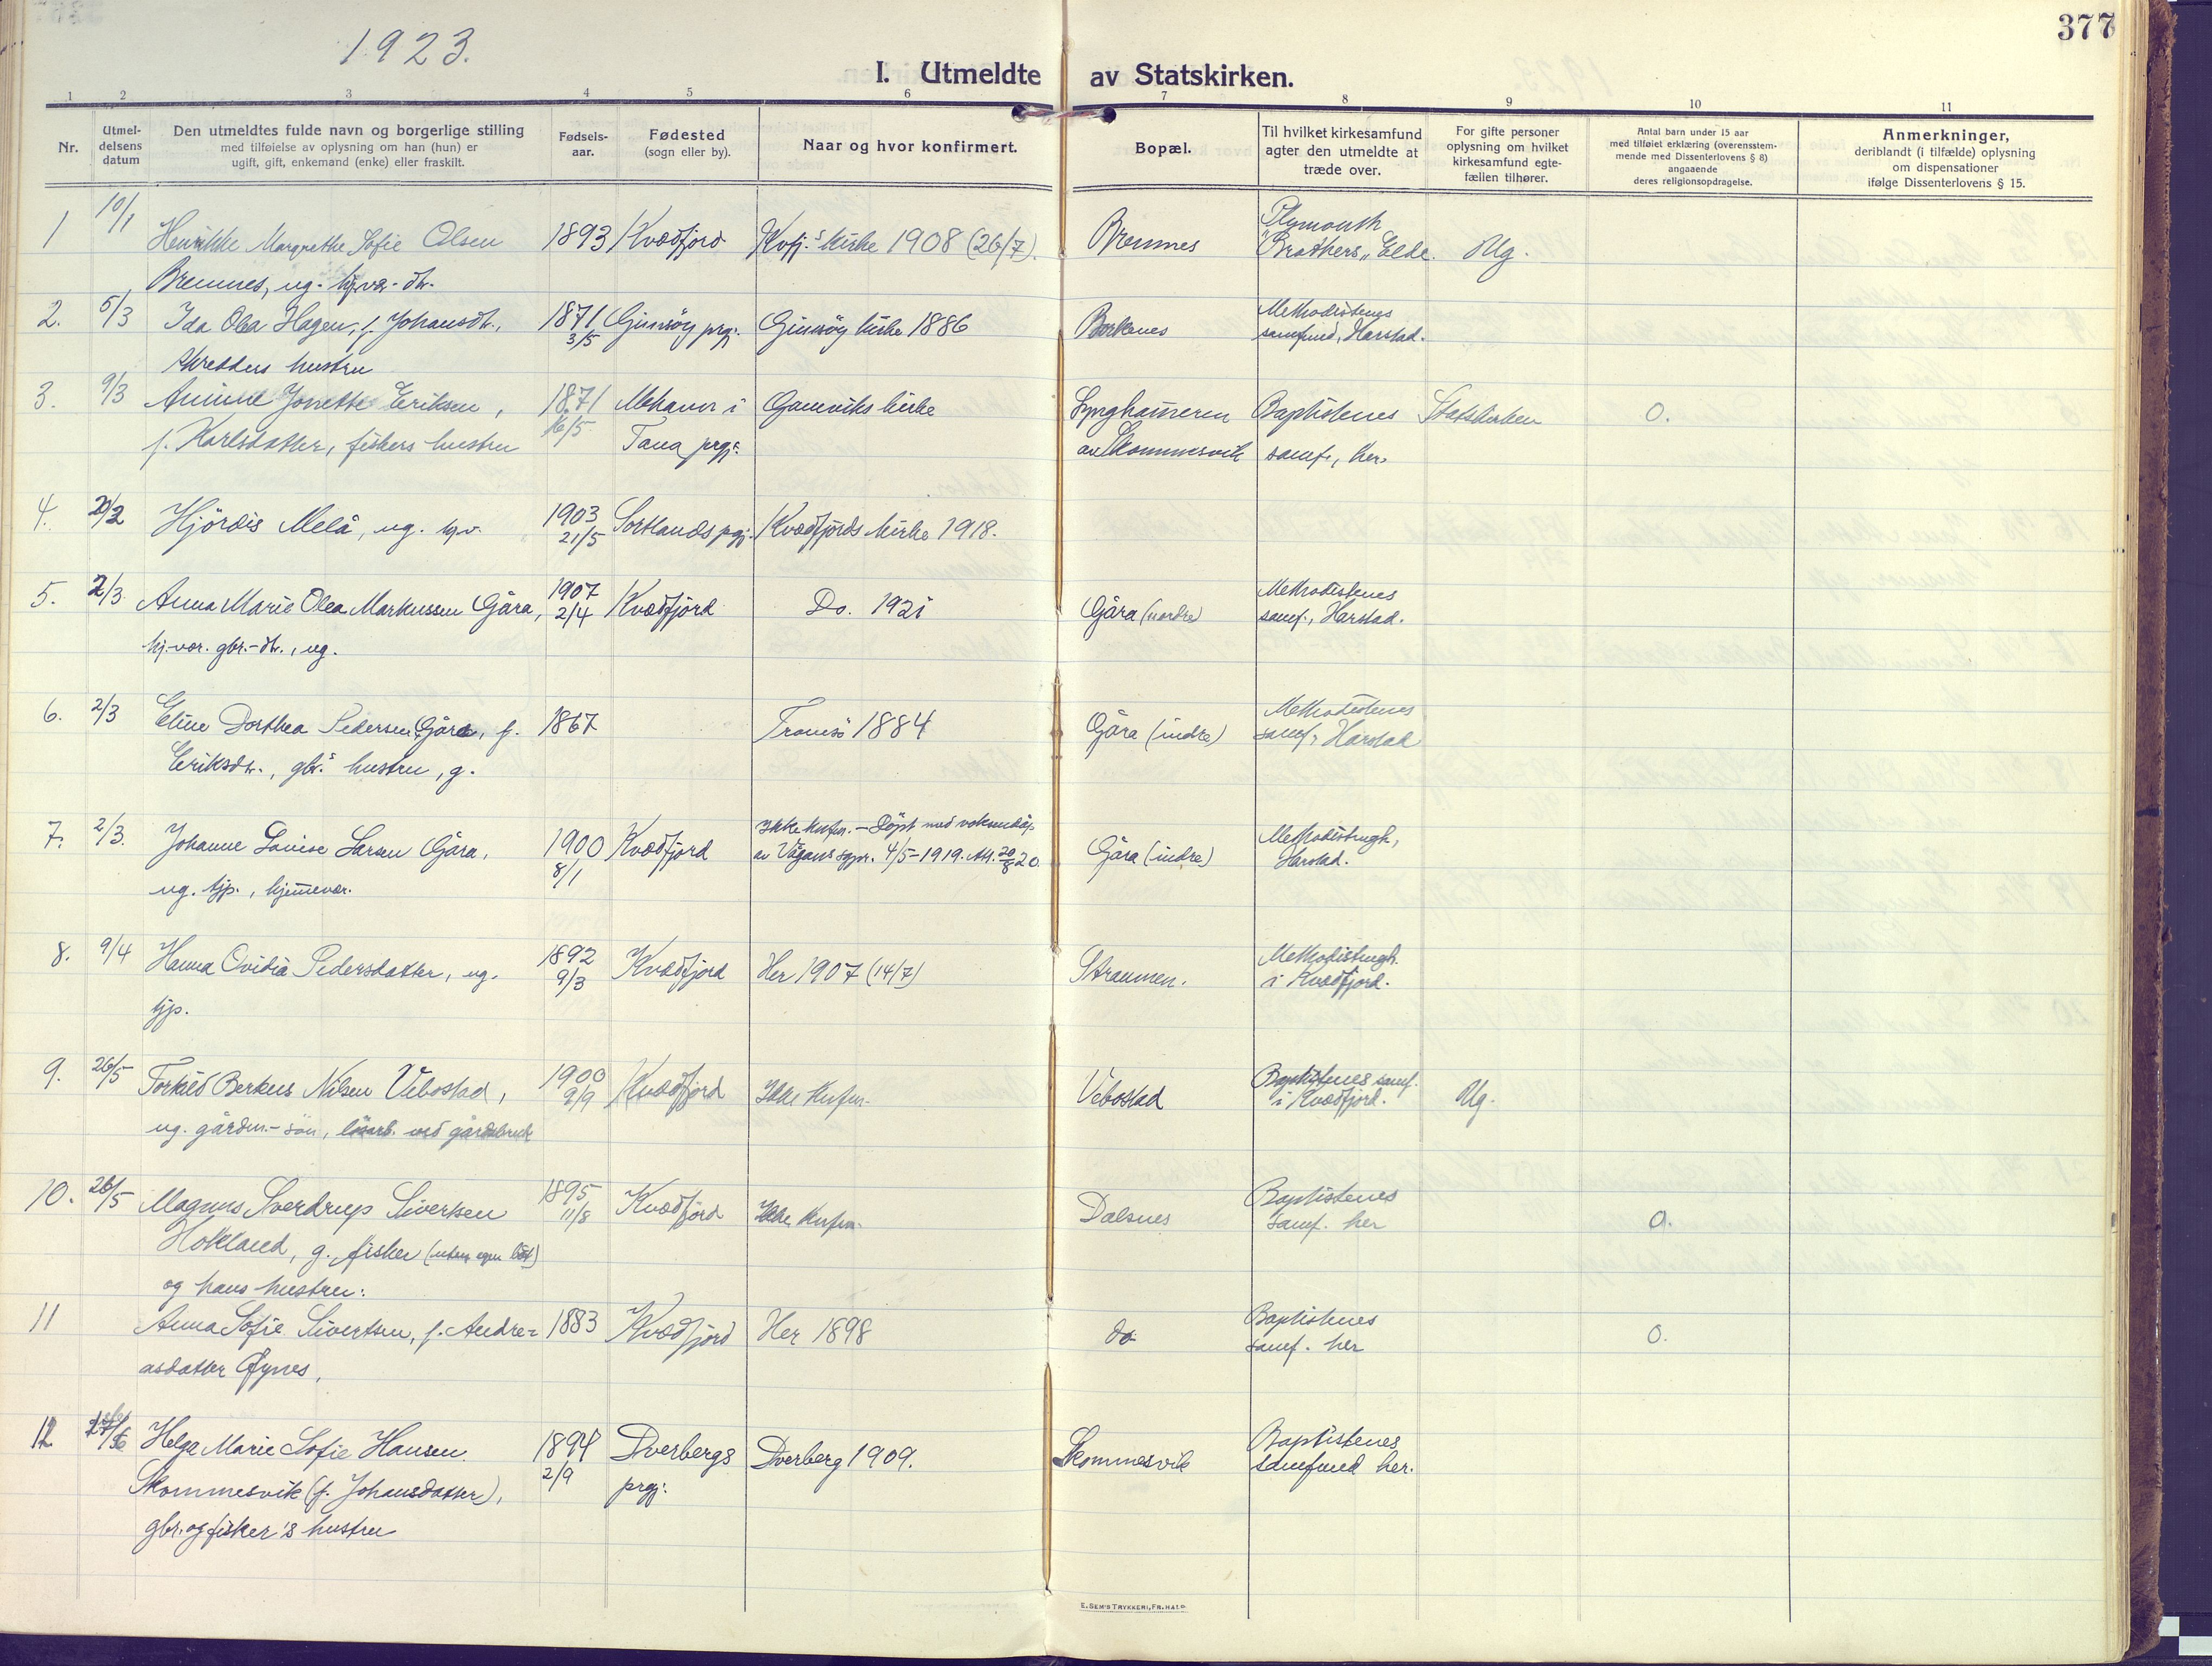 377
1923.
I. Utmeldte av Statskirken.
1 2 3 4 5 6 7 8 9 10 11
Nr.
Utmel-
delsens
datum
Den utmeldtes fulde navn og borgerlige stilling
med tilføielse av oplysning om han (hun) er
ugift, gift, enkemand (enke) eller fraskilt.
Fødsels-
aar.
Fødested
(sogn eller by).
Naar og hvor konfirmert.
Bopæl.
Til hvilket kirkesamfund
agter den utmeldte at
træde over.
For gifte personer
oplysning om hvilket
kirkesamfund egte-
fællen tilhører.
Antal barn under 15 aar
med tilføiet erklæring (overensstem-
mende med Dissenterlovens § 8)
angaaende
deres religionsopdragelse.
Anmerkninger,
deriblandt (i tilfælde) oplysning
om dispensationer
ifølge Dissenterlovens § 15.
1 10/1 Henrikke Margrethe Sofie Olsen 1893 Kvædfjord Kvfj.s kirke 1908 (26/7). Bremnes Plymouth
"Brothers" Elde. Ug.
Bremnes, ug. hj.vær. dtr.
2. 5/3 Ida Olea Hagen, f. Johansdtr., 1871 Gimsøy prgj. Gimsøy kirke 1886 Borkenes Methodistenes
3/5 samfund, Harstad.
skredders hustru
3. 9/3 Jonette Eriksen, 1871 Mehavn i Gamviks kirke Lynghaugen Baptistenes Statskirken 0.
f. Karlsdatter, fiskers hustru 16/5 Tana prgj. av Skommesvik samf., her.
4. 2/2 Hjördis Melå, ug. hjv. 1903 Sortlands prgj. Kvædfjords kirke 1918.
21/5
5. 2/3 Anna Marie Olea Markussen Gåra, 1907 Kvædfjord Do. 1921 Gåra (nordre) Methodistenes
2/4 samf., Harstad.
hj.vær. gbr.-dtr., ug.
6. 2/3 Eline Dorthea Pedersen Gåra, f. 1867 Tromsö 1884 Gåra (indre) Methodistenes
samf., Harstad
Eriksdtr., gbr.s hustru, g.
7. 2/3. Johanne Lovise Larsen Gåra, 1900 Kvædfjord Ikke knfm. – Döpt ved voksendåp
8/1 av Vågans sgpr. 4/5-1919. Att. 20/8 20. Gåra (indre) Methodistmgh.,
Harstad.
ug. tjp., hjemmevær.
8. 9/4 Hanna Ovidia Pedersdatter, ug. 1892 Kvædfjord Her 1907 (14/7) Straumen. Methodistmgh.
9/3 i Kvædfjord.
tjp.
9. 26/5 Torkild Berkus Nilsen Vebostad, 1900 Kvædfjord Ikke knfm. Vebostad Baptistenes samf.
9/9 i Kvædfjord. Ug.
ug. gårdm.-sön, lösarb. ved gårdsbruk
10. 26/5 Magnus Sverdrup Sivertsen 1895 Kvædfjord Ikke knfm. Dalsnes Baptistenes
11/8 samf. her 0.
Hokland, g. fisker (uten egen båt)
og hans hustru:
11 Anna Sofie Sivertsen, f. Andre= 1883 Kvædfjord Her 1898 do Baptistenes
samf. her 0.
asdatter Øynes,
12 Helga Marie Sofie Hansen 1894 Dverbergs Dverberg 1909. Skommesvik Baptistenes
samfund her.
Skommesvik (f. Johansdatter), 2/9 prgj.
gbr. og fisker's hustru
E. SEM'S TRYKKERI, FR.HALD